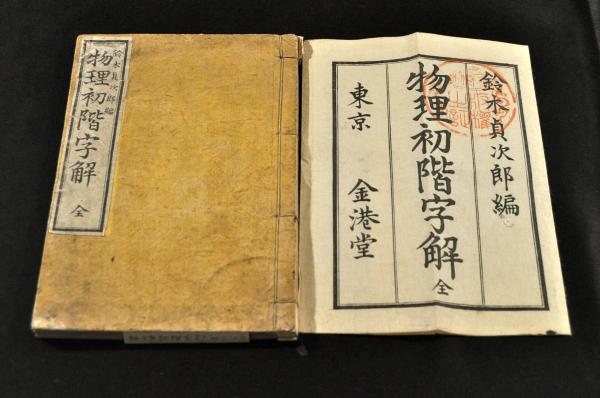 鈴木貞次郎編
物理初階字解 全
東京 金港堂
鈴木貞次郎編
物理初階字解 全